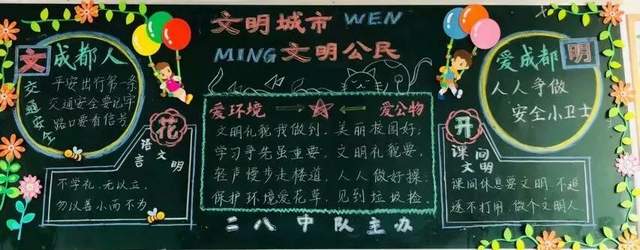 文明城市 WEN
MING 文明公民
文 成都人
交通安全
平安出行第一条
交通安全要记牢
路口要有信号
花
语言文明
不学礼,无以立,
勿以善小而不为
爱环境 爱公物
文明礼貌我做到,美丽校园好,
学习争先虽重要,文明礼貌要,
轻声慢步走楼道,人人做好操,
保护环境爱花草,见到垃圾捡
爱成都 明
人人争做
安全小卫士
开
课间文明
课间休息要文明,不追
逐不打用,做个文明人
二八中队主办